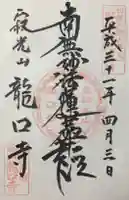 平成三十一年四月三日
南無妙法蓮華経
寂光山
龍口寺